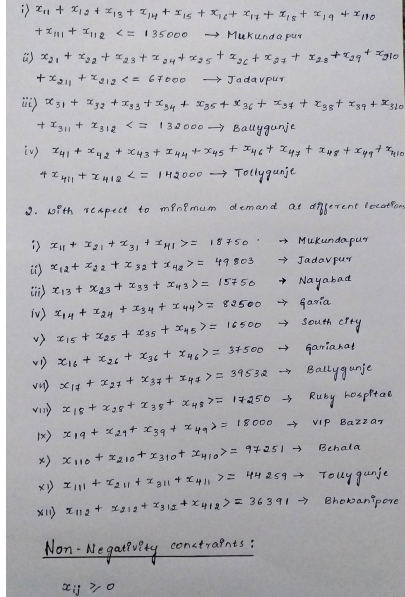 i) x11 + x12 + x13 + x14 + x15 + x16 + x17 + x18 + x19 + x110
+ x111 + x112 <= 135000 → Mukundapur
ii) x21 + x22 + x23 + x24 + x25 + x26 + x27 + x28 + x29 + x210
+ x211 + x212 <= 67000 → Jadavpur
iii) x31 + x32 + x33 + x34 + x35 + x36 + x37 + x38 + x39 + x310
+ x311 + x312 <= 132000 → Ballygunje
iv) x41 + x42 + x43 + x44 + x45 + x46 + x47 + x48 + x49 + x410
+ x411 + x412 <= 142000 → Tollygunje
2. With respect to minimum demand at different locations
i) x11 + x21 + x31 + x41 >= 18750 → Mukundapur
ii) x12 + x22 + x32 + x42 >= 49803 → Jadavpur
iii) x13 + x23 + x33 + x43 >= 15750 → Nayabad
iv) x14 + x24 + x34 + x44 >= 82500 → Garia
v) x15 + x25 + x35 + x45 >= 16500 → South city
vi) x16 + x26 + x36 + x46 >= 37500 → Gariahat
vii) x17 + x27 + x37 + x47 >= 39532 → Ballygunje
viii) x18 + x28 + x38 + x48 >= 17250 → Ruby hospital
ix) x19 + x29 + x39 + x49 >= 18000 → VIP Bazzar
x) x110 + x210 + x310 + x410 >= 97251 → Behala
xi) x111 + x211 + x311 + x411 >= 44259 → Tollygunje
xii) x112 + x212 + x312 + x412 >= 36391 → Bhowanipore
Non-Negativity constraints:
xij ≥ 0